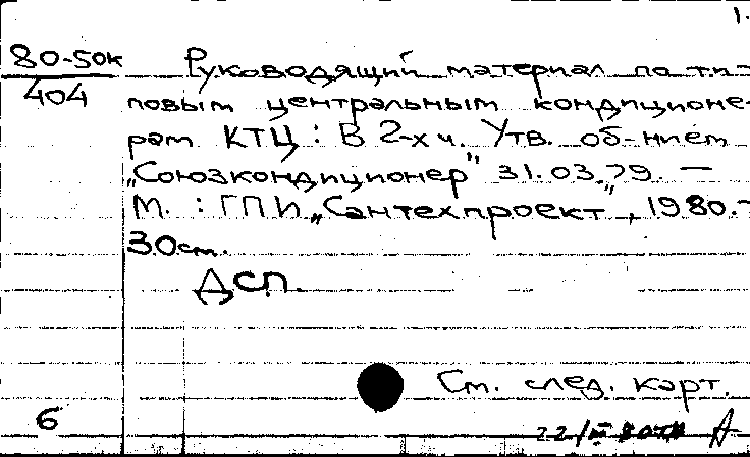 1.
80-50к
404
Руководящий материал по ти-
повым центральным кондиционе-
рам КТЦ: В 2-х ч. Утв. об-нием
"Союзкондиционер" 31.03.79. —
М. : ГПИ „Сантехпроект", 1980.-
30см.
ДСП.
См. след. карт.
б
22/III